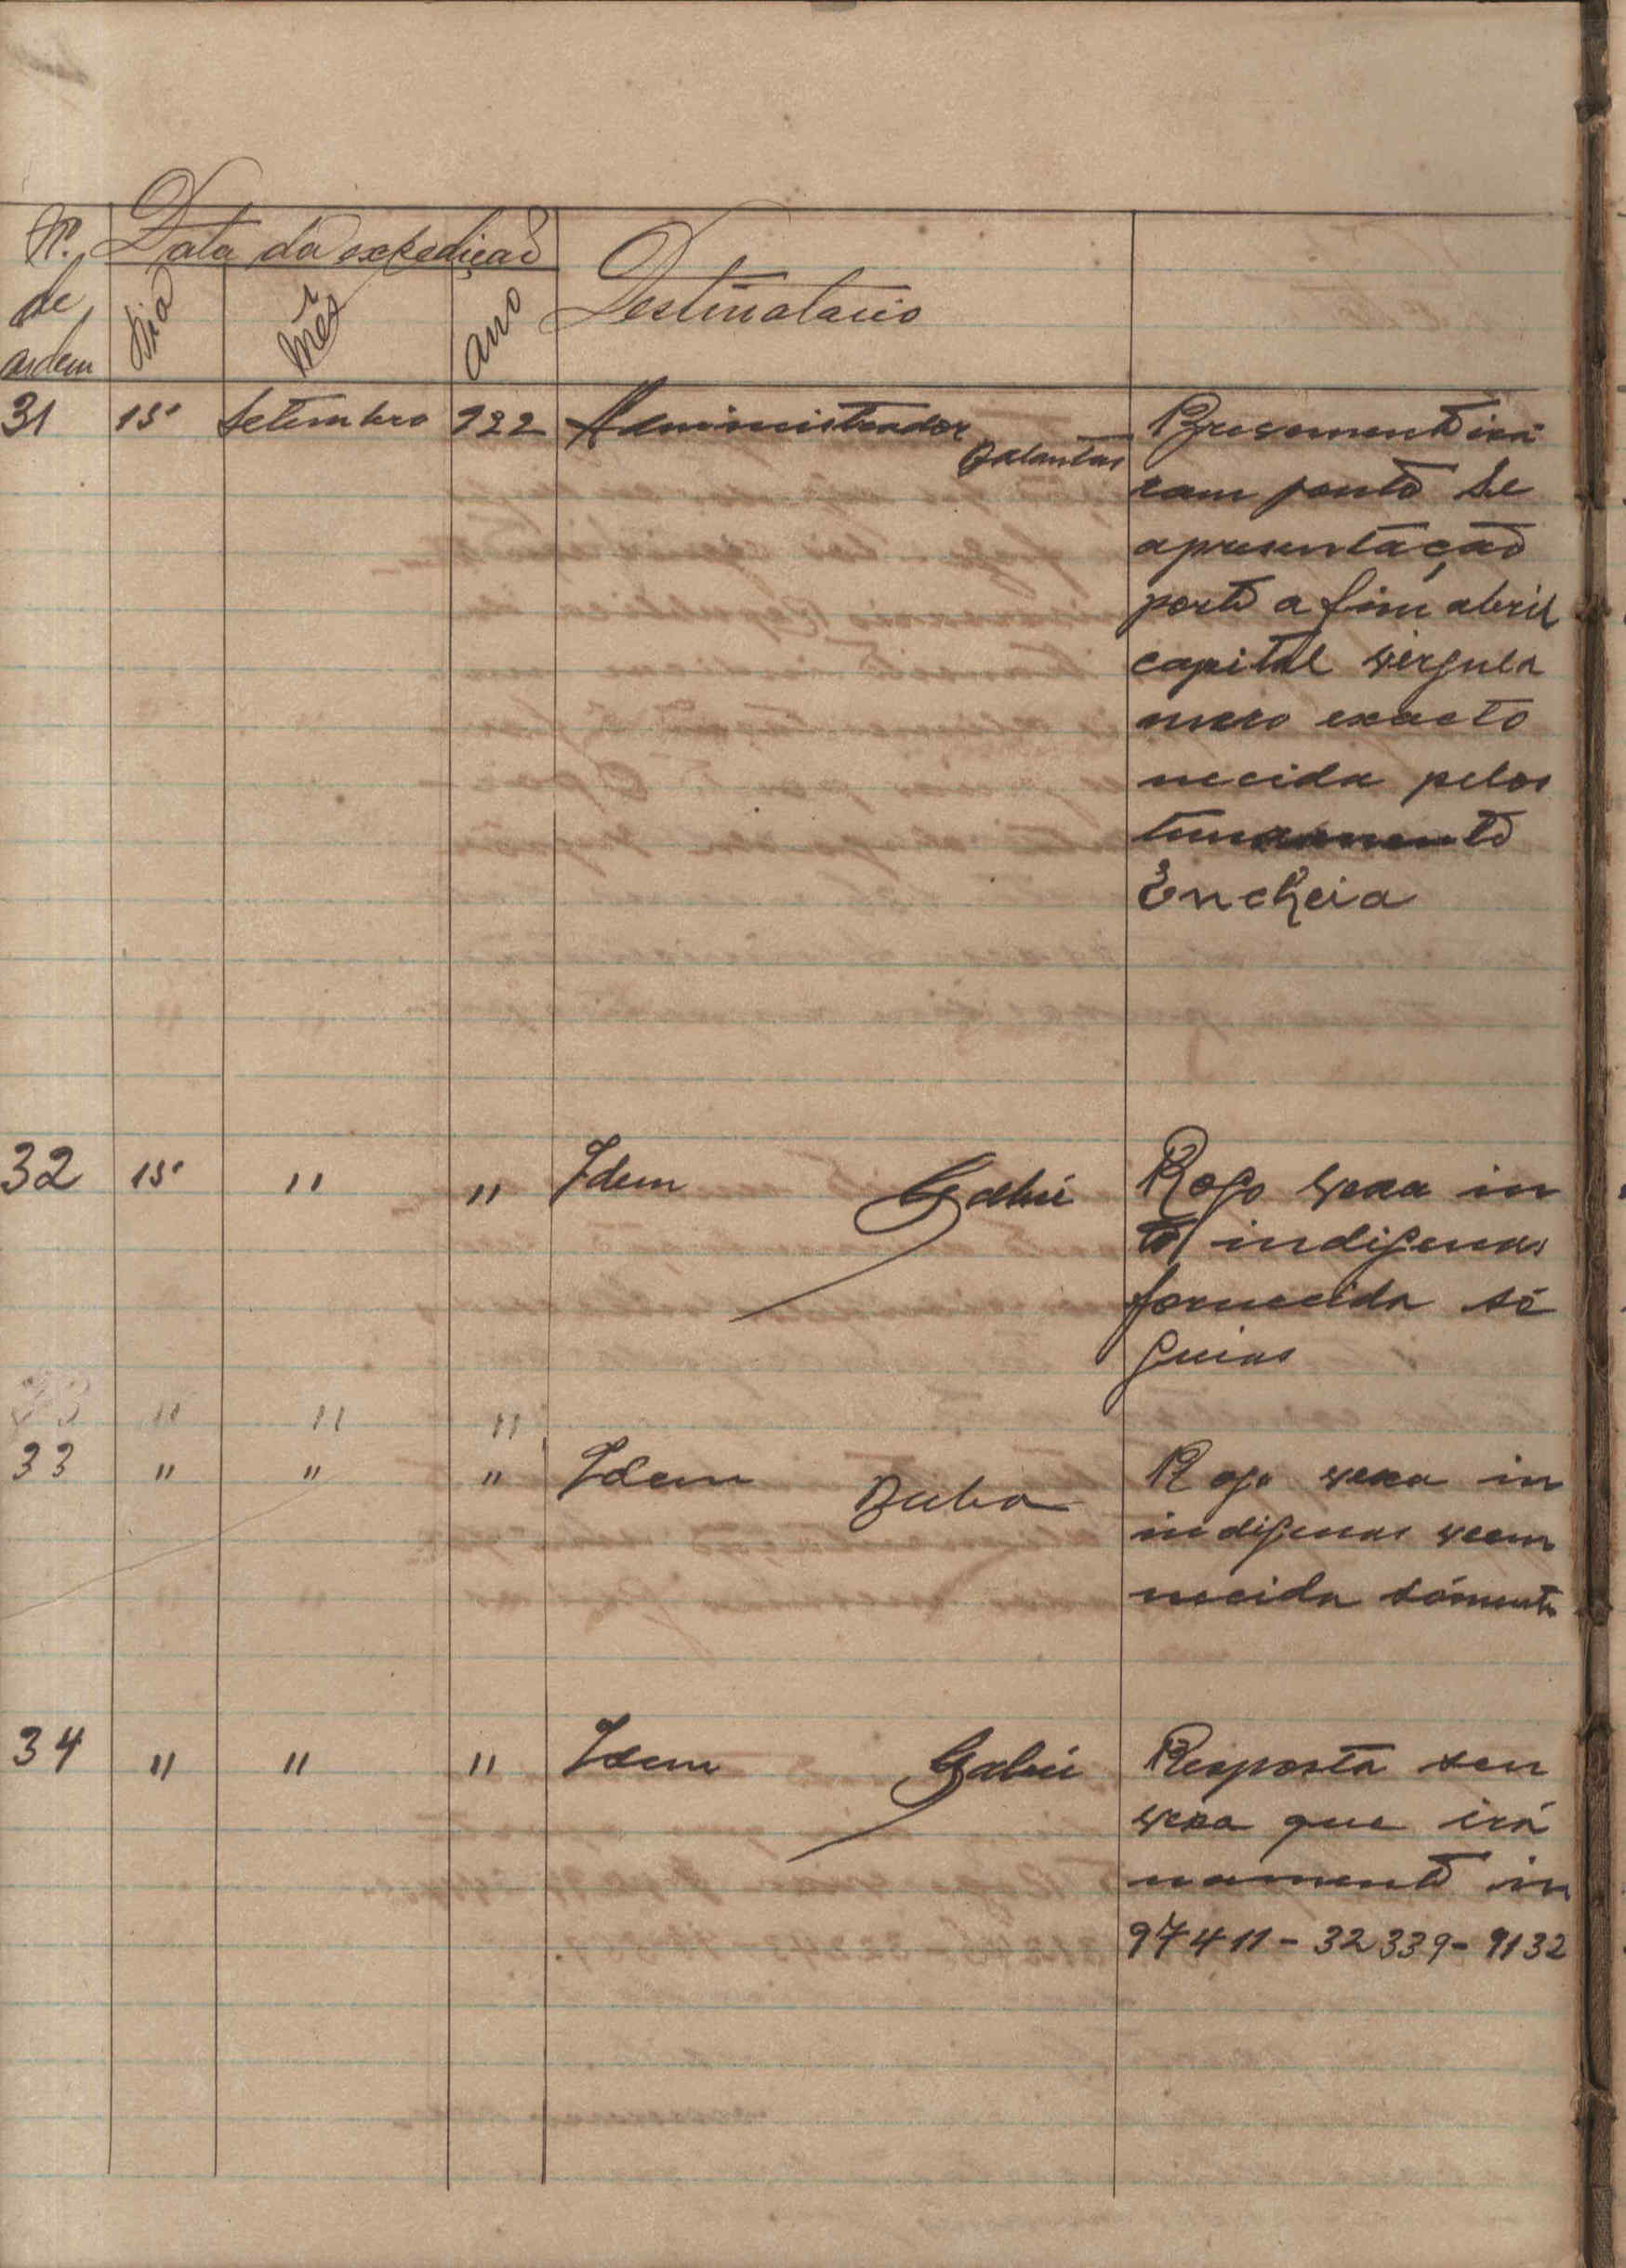 Nº. de ordem
Data da expedição
Dia Mês Ano
Destinatario
31 15 Setembro 922 Administrador
Balantas
Brevemente irá
ram ponto Se
apresentação
porto a fim abril
capital virgula
mero exacto
necida pelos
Encheia
32 15 " " Idem Gabú
Rogo vexa in
to indigenas
fornecida só
guias
33 " " "
33 " " " Idem Buba
Rogo vexa in
indigenas veem
necida sómente
34 " " " Idem Gabú
Resposta seu
vexa que irá
namento in
97411 - 32339 - 9132